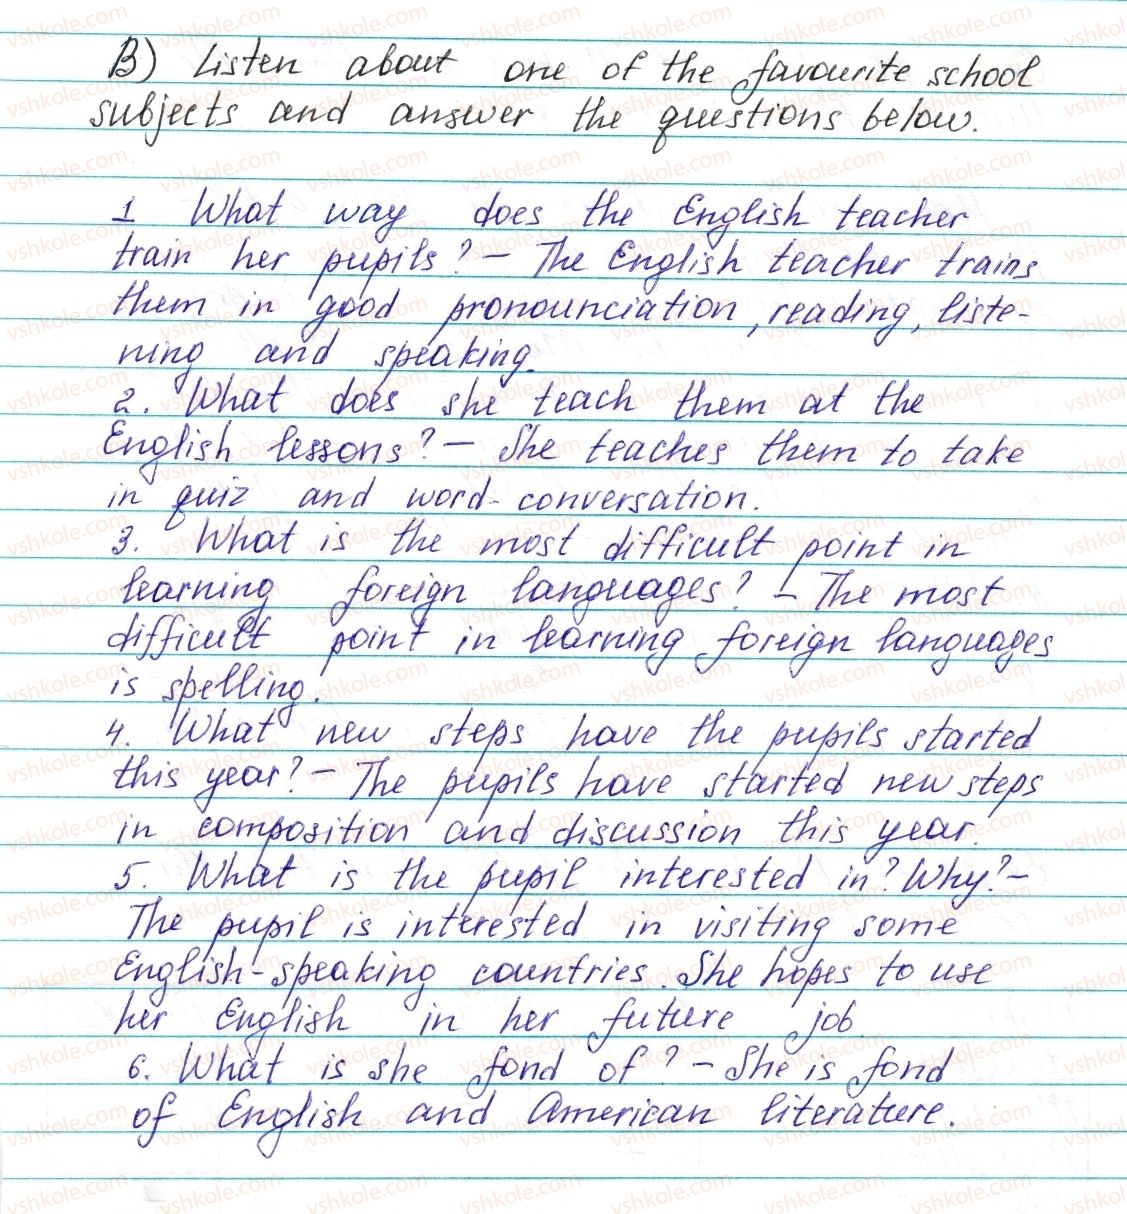 B) Listen about one of the favourite school
subjects and answer the questions below.
1 What way does the English teacher
train her pupils? – The English teacher trains
them in good pronounciation, reading, liste-
ning and speaking.
2. What does she teach them at the
English lessons? – She teaches them to take
in quiz and word-conversation.
3. What is the most difficult point in
learning foreign languages? – The most
difficult point in learning foreign languages
is spelling.
4. What new steps have the pupils started
this year? – The pupils have started new steps
in composition and discussion this year.
5. What is the pupil interested in? Why? –
The pupil is interested in visiting some
English-speaking countries. She hopes to use
her English in her future job.
6. What is she fond of? – She is fond
of English and American literature.
vshkole.com